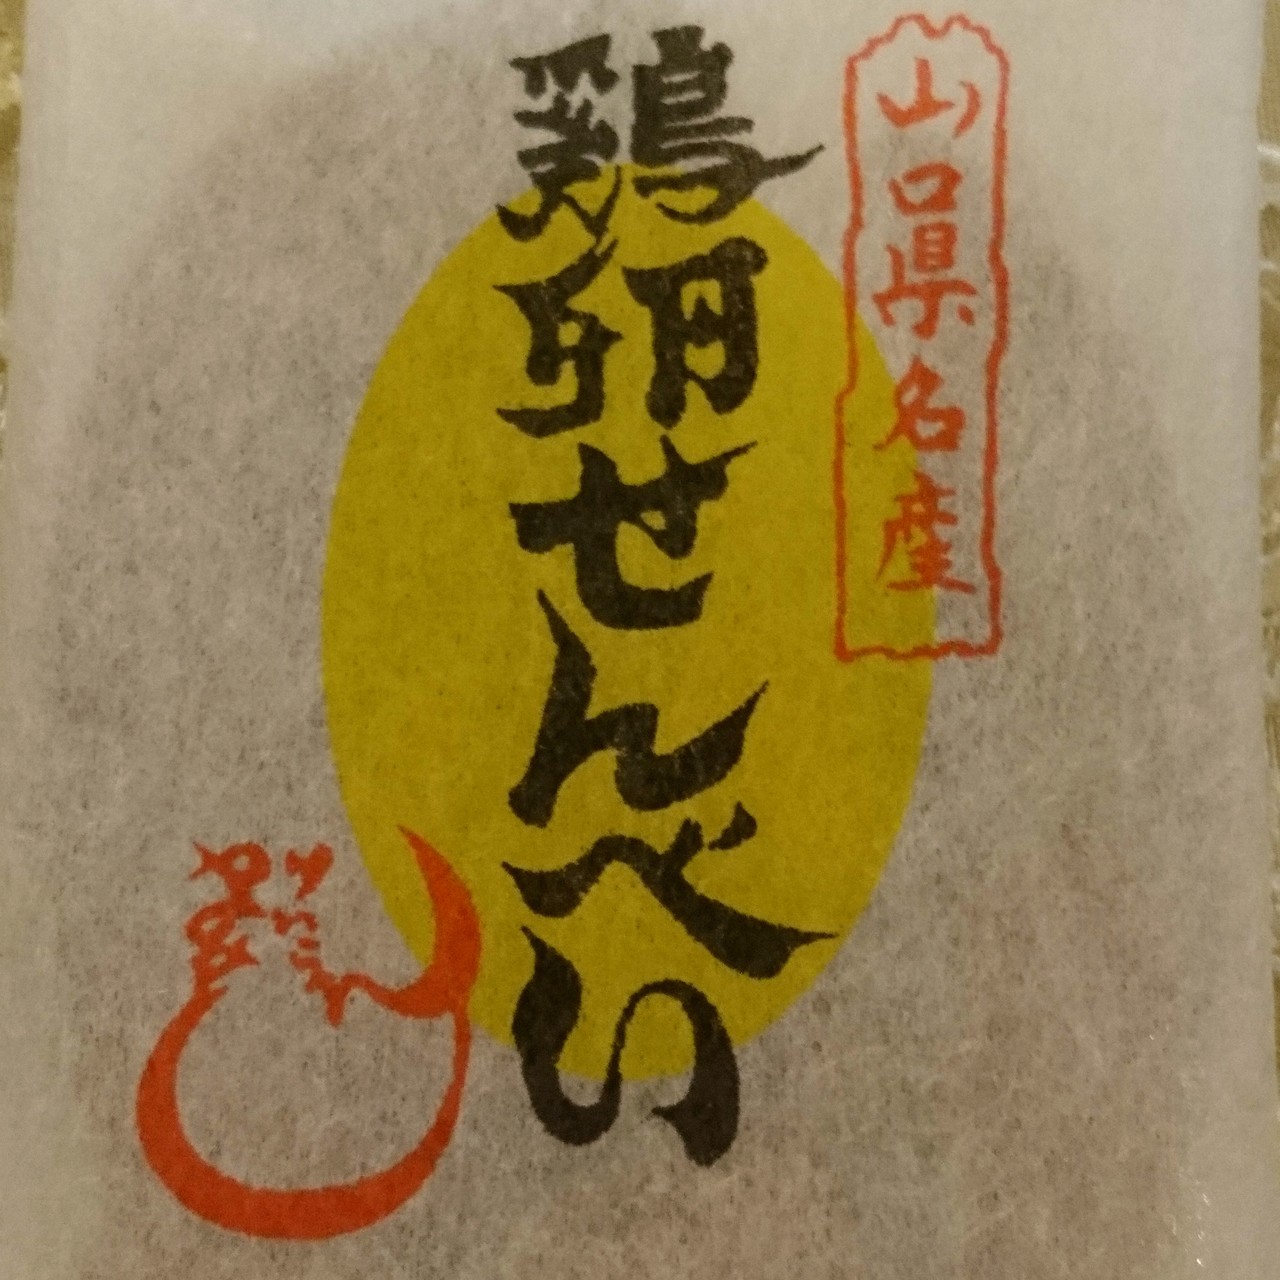 山口県名産
鶏卵せんべい